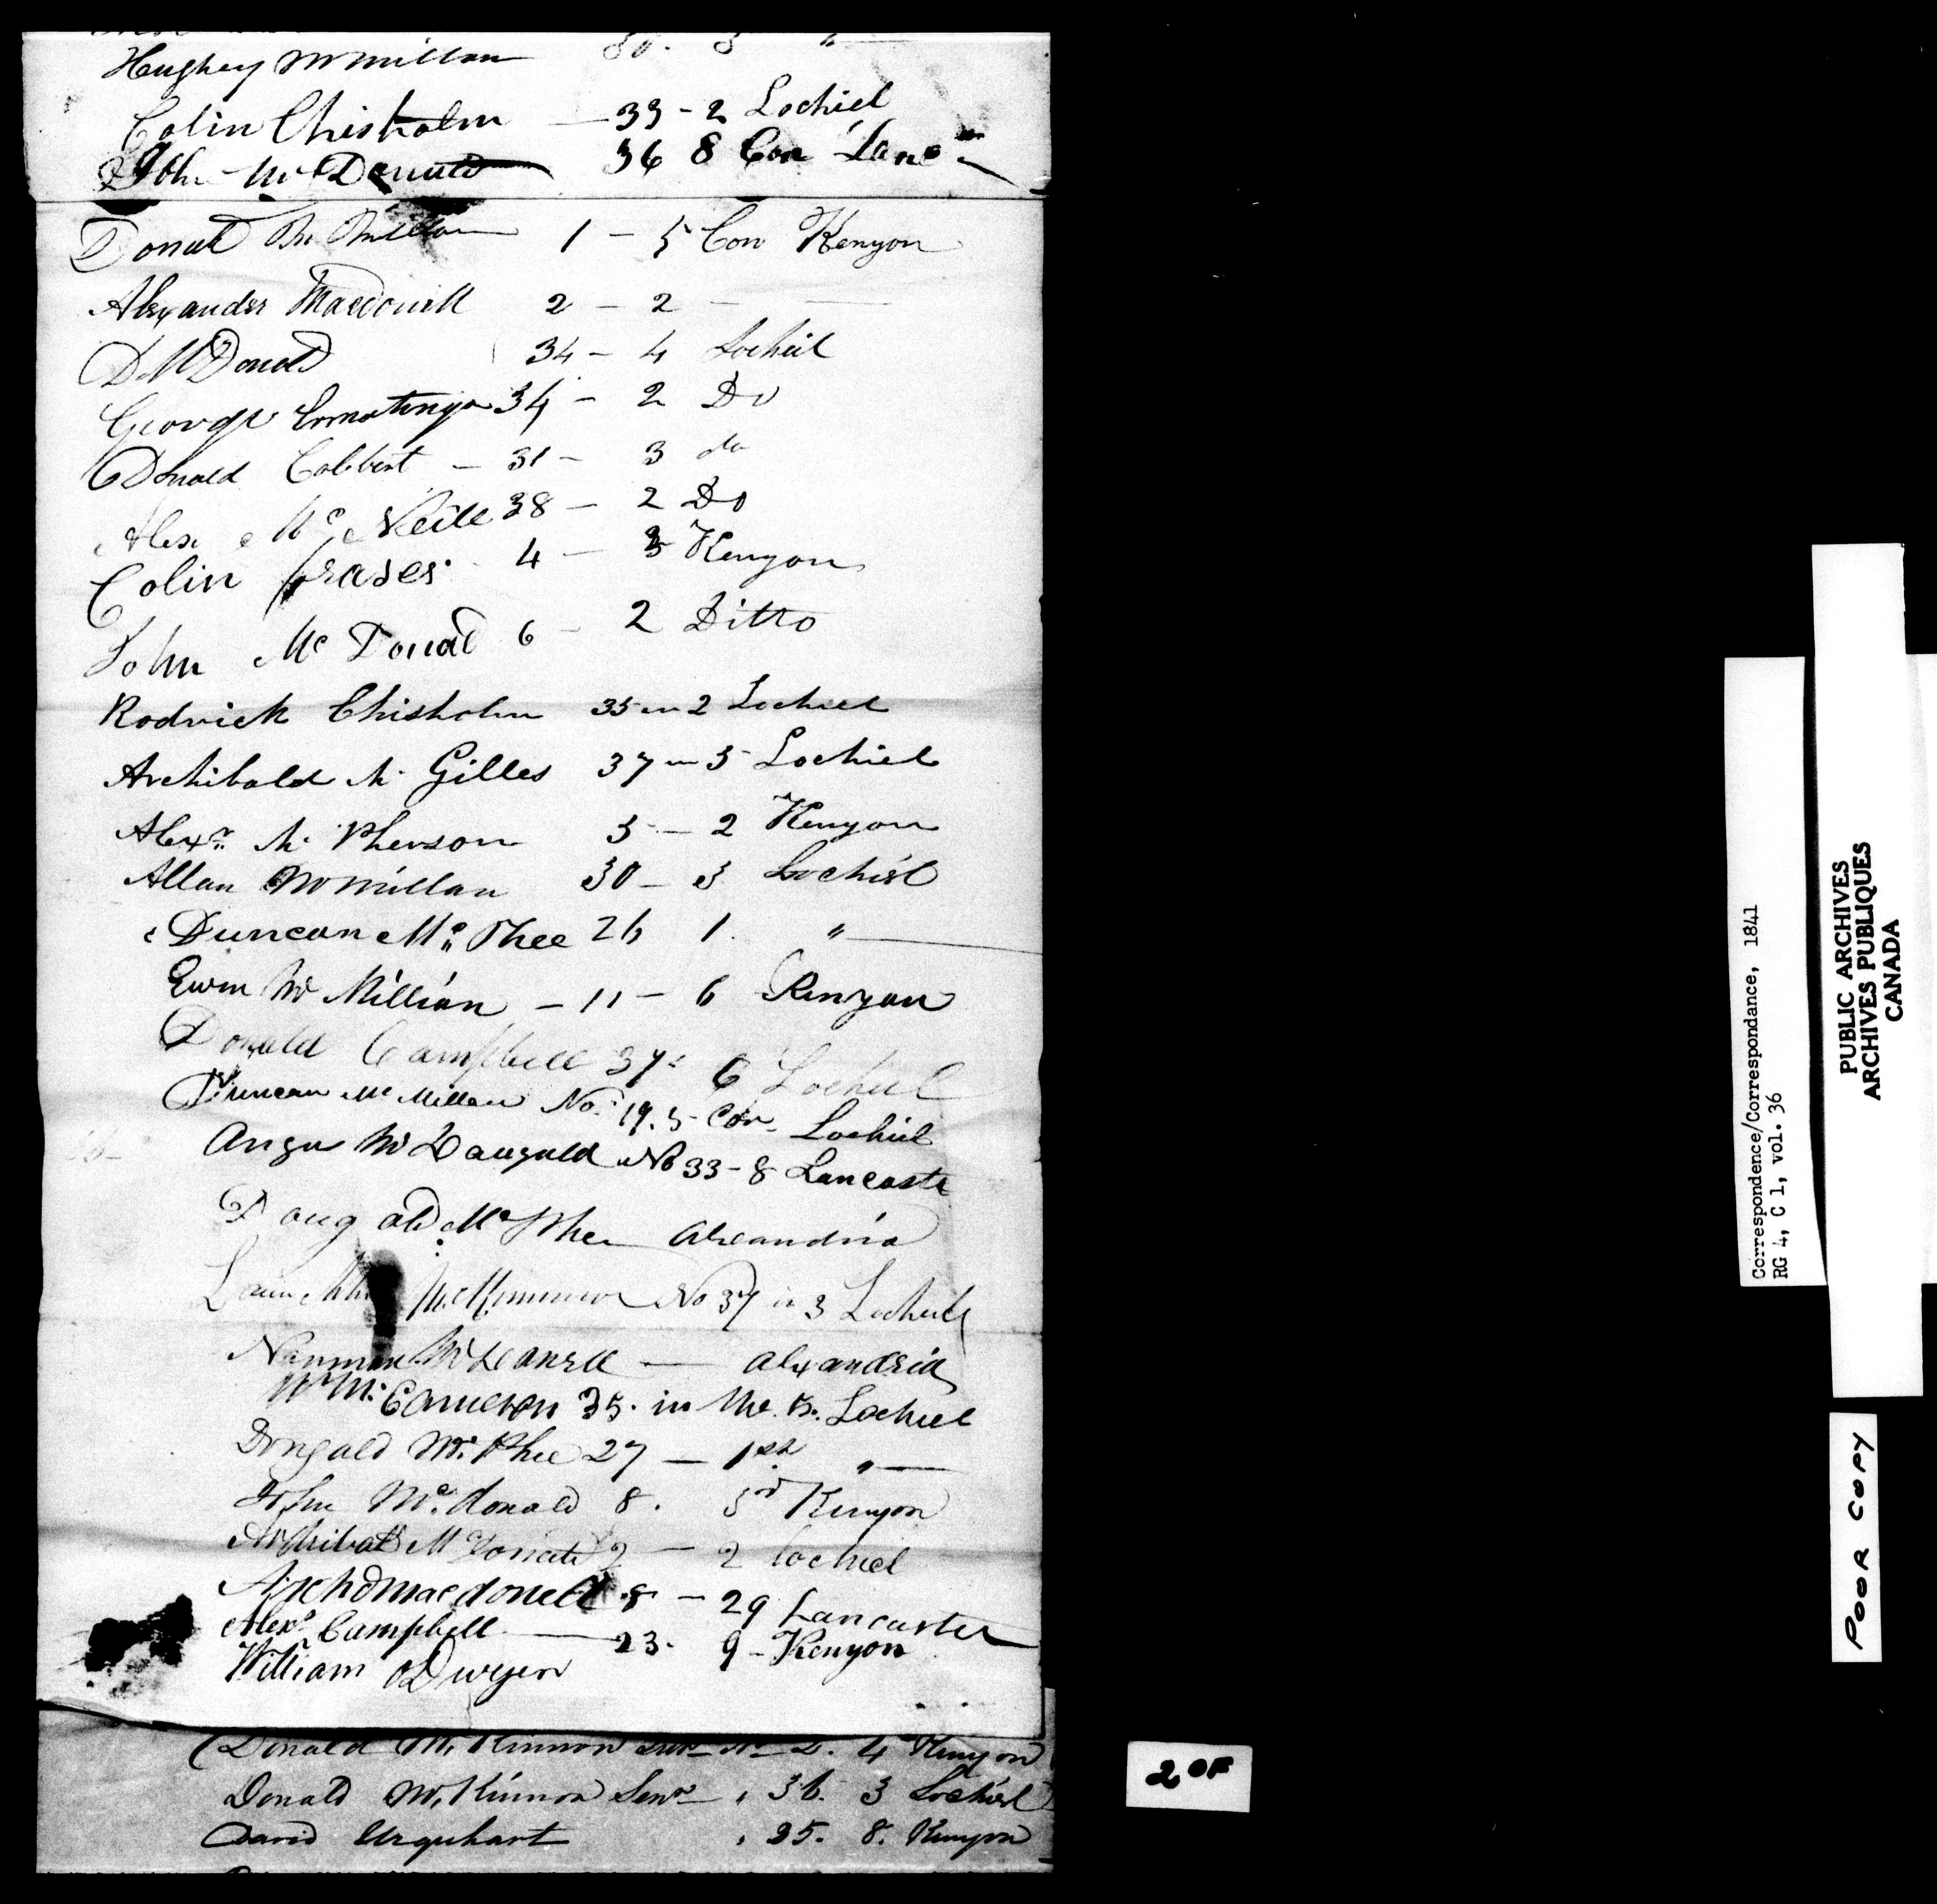 Hughey McMillan 30. 3 "
Colin Chisholm — 33 - 2 Lochiel
John McDonald 36 8 Con Lanc
Donal McMillan 1 - 5 Con Kenyon
Alexander Macdonell 2 - 2 - —
D McDonald 34 - 4 Lochiel
George Ermatinger 34 - 2 Do
Donald Cobbert - 31 - 3 do
Alex McNeill 38 - 2 Do
Colin fraser 4 - 3 Kenyon
John McDonal 6 - 2 Ditto
Rodrick Chisholm 35 in 2 Lochiel
Archibald Mc Gilles 37 in 5 Lochiel
Alexr. Mc Pherson 5 - 2 Kenyon
Allan McMillan 30 - 3 Lochiel
Duncan Mc Phee 26 1. "
Ewen Mc Millian - 11 - 6 Kenyon
Donald Campbell 37 6 Lochiel
Duncan McMillan No. 19. 5 Con Lochiel
Angus McDougald No 33 - 8 Lancaster
Dougald McPhee Alexandria
McKinnon No 37 in 3 Lochiel
Norman McLeod — Alexandria
Wm. Cameron 35. in the 5. Lochiel
Dongald Mc. Phee 27 — 1st "
John Mc. donald 8. 3rd Kenyon
Archibald McDonald 2 - 2 lochiel
Archd macdonell 8 - 29 Lancaster
Alexr Campbell — 23. 9 - Kenyon
William ODwyer
Donald McKinnon 2. 4 Kenyon
Donald McKinnon Senr , 36. 3 Lochiel
David Urquhart , 25. 8. Kenyon
Correspondence/Correspondance, 1841
RG 4, C 1, vol. 36
PUBLIC ARCHIVES
ARCHIVES PUBLIQUES
CANADA
POOR COPY
2 OF